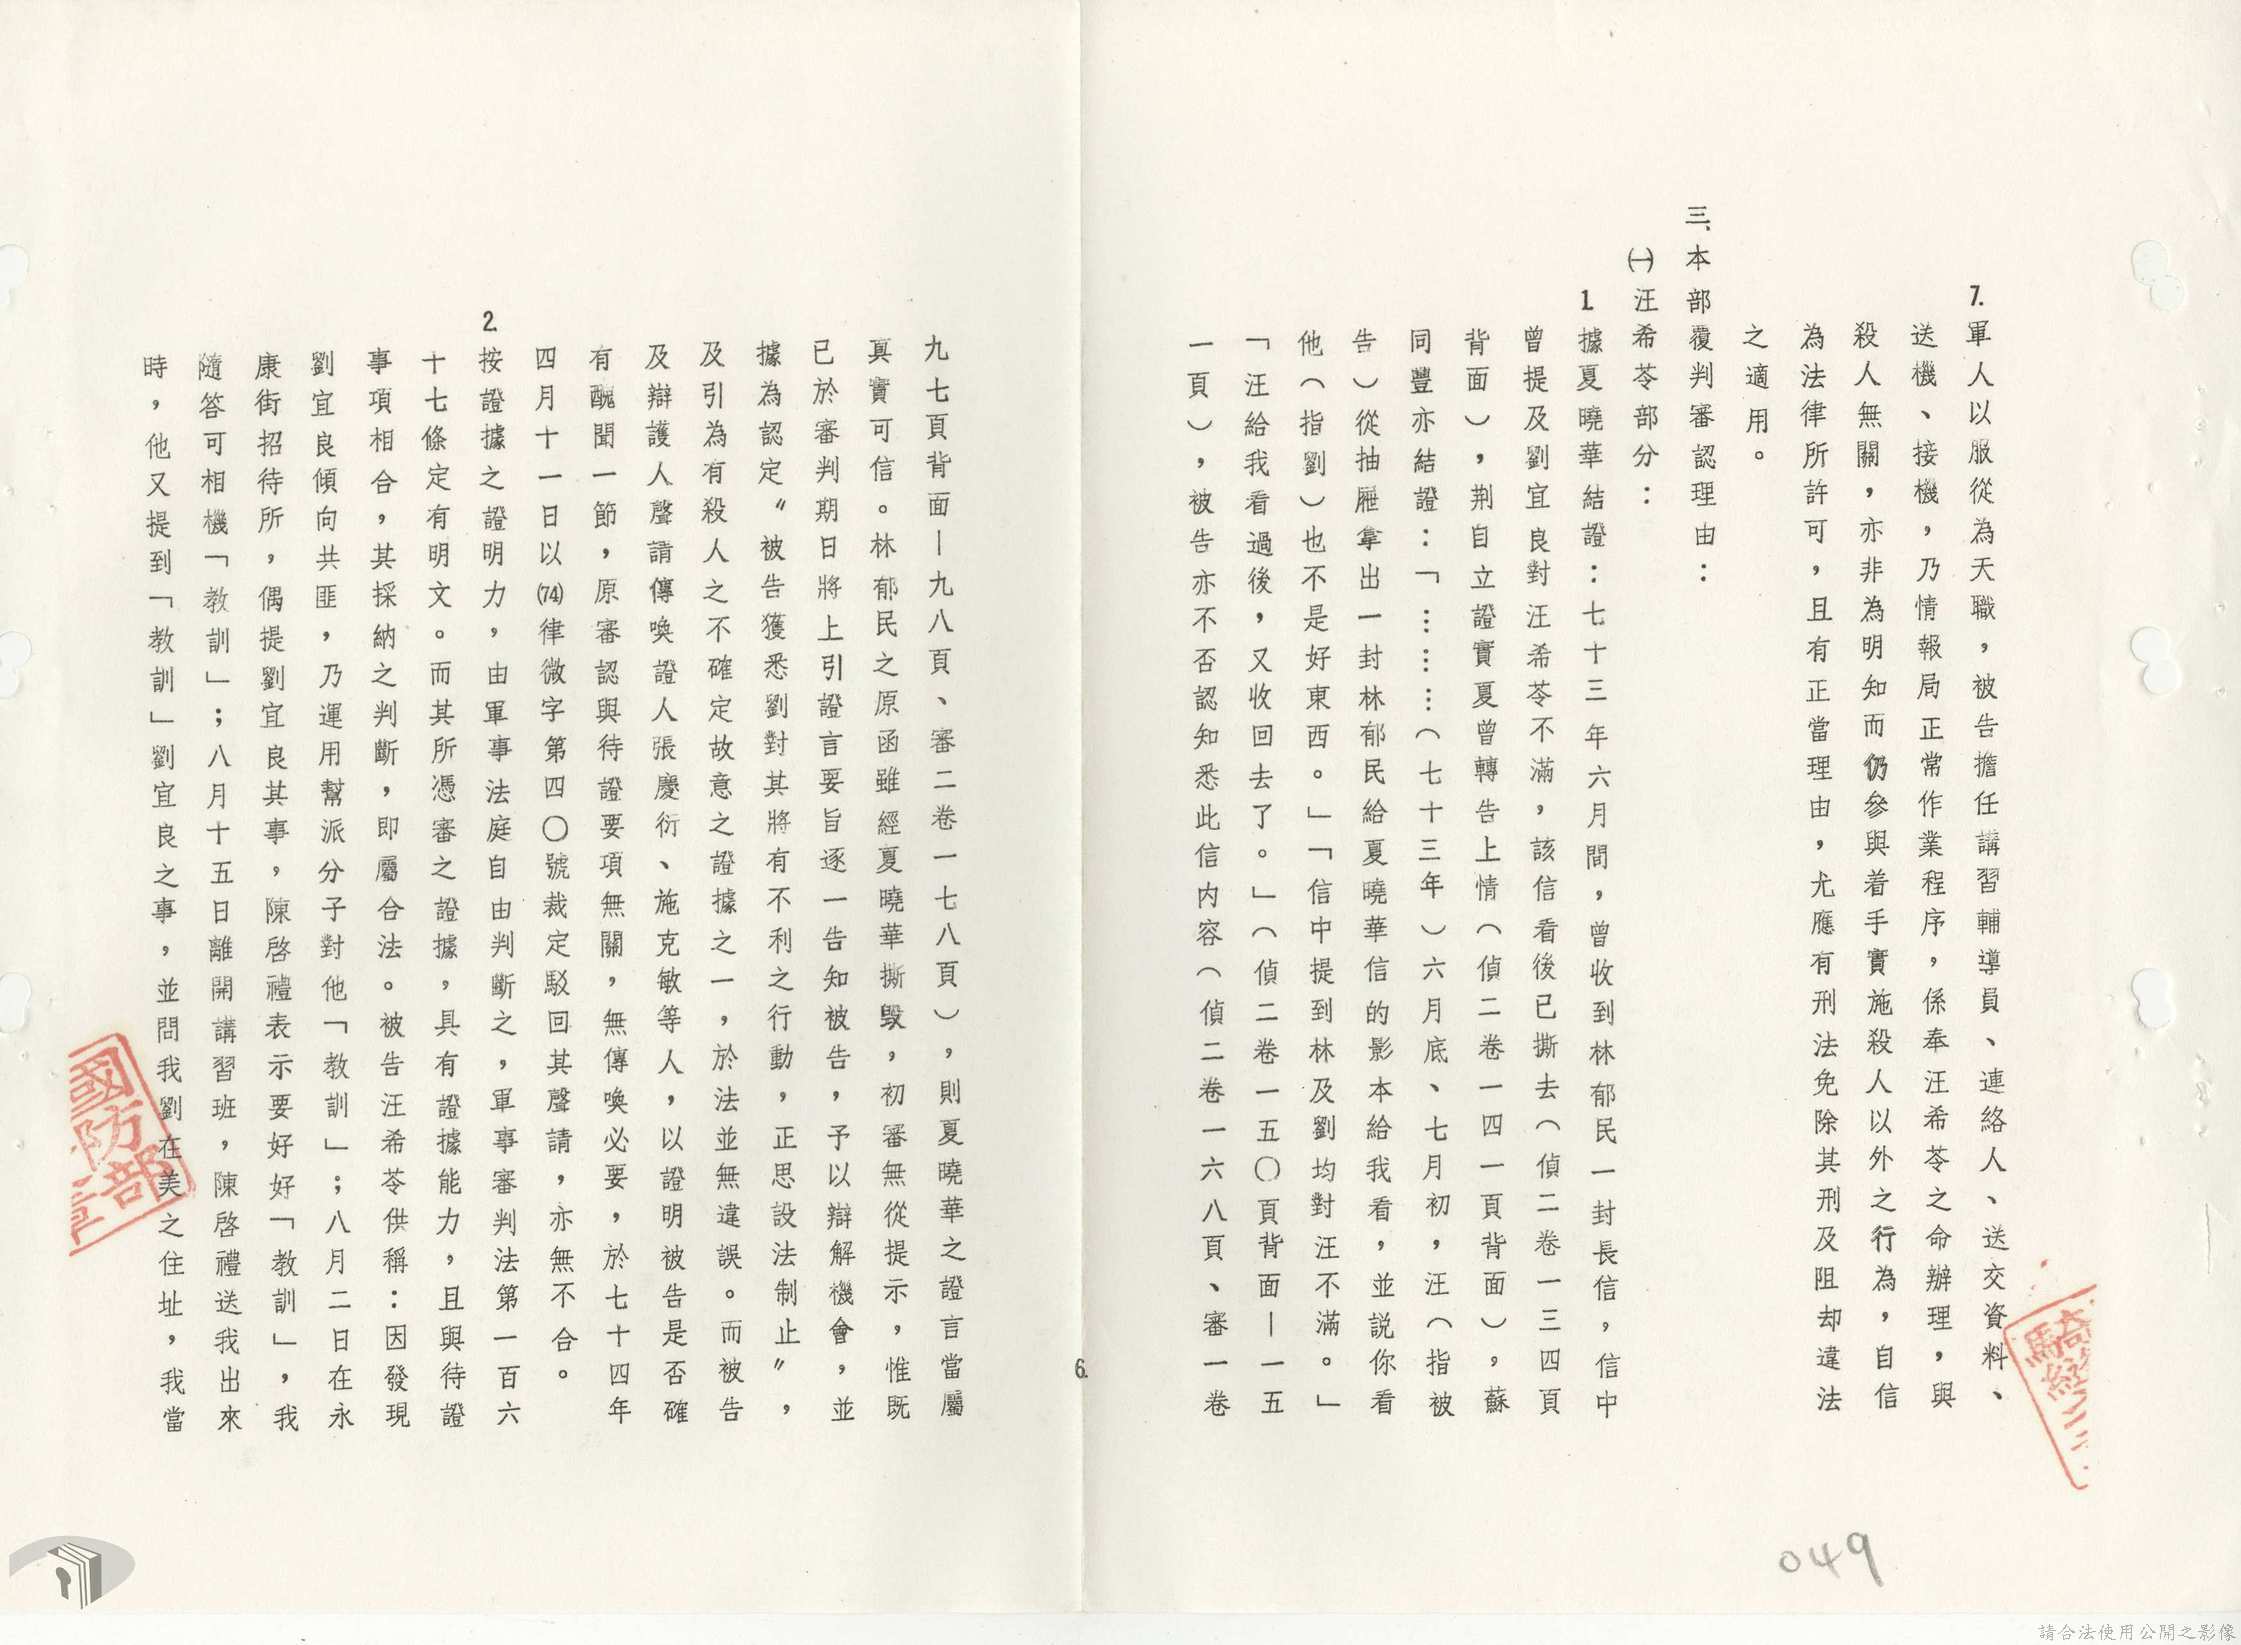 7.軍人以服從為天職，被告擔任講習輔導員、連絡人、送交資料、
送機、接機，乃情報局正常作業程序，係奉汪希苓之命辦理，與
殺人無關，亦非為明知而仍參與着手實施殺人以外之行為，自信
為法律所許可，且有正當理由，尤應有刑法免除其刑及阻却違法
之適用。
三、本部覆判審認理由：
㈠汪希苓部分：
1.據夏曉華結證：七十三年六月間，曾收到林郁民一封長信，信中
曾提及劉宜良對汪希苓不滿，該信看後已撕去（偵二卷一三四頁
背面），荆自立證實夏曾轉告上情（偵二卷一四一頁背面），蘇
同豐亦結證：「………（七十三年）六月底、七月初，汪（指被
告）從抽屜拿出一封林郁民給夏曉華信的影本給我看，並説你看
他（指劉）也不是好東西。」「信中提到林及劉均對汪不滿。」
「汪給我看過後，又收回去了。」（偵二卷一五〇頁背面—一五
一頁），被告亦不否認知悉此信内容（偵二卷一六八頁、審一卷
6.
九七頁背面—九八頁、審二卷一七八頁），則夏曉華之證言當屬
真實可信。林郁民之原函雖經夏曉華撕毀，初審無從提示，惟既
已於審判期日將上引證言要旨逐一告知被告，予以辯解機會，並
據為認定〝被告獲悉劉對其將有不利之行動，正思設法制止〞，
及引為有殺人之不確定故意之證據之一，於法並無違誤。而被告
及辯護人聲請傳喚證人張慶衍、施克敏等人，以證明被告是否確
有醜聞一節，原審認與待證要項無關，無傳喚必要，於七十四年
四月十一日以(74)律微字第四〇號裁定駁回其聲請，亦無不合。
2.按證據之證明力，由軍事法庭自由判斷之，軍事審判法第一百六
十七條定有明文。而其所憑審之證據，具有證據能力，且與待證
事項相合，其採納之判斷，即屬合法。被告汪希苓供稱：因發現
劉宜良傾向共匪，乃運用幫派分子對他「教訓」；八月二日在永
康街招待所，偶提劉宜良其事，陳啓禮表示要好好「教訓」，我
隨答可相機「教訓」；八月十五日離開講習班，陳啓禮送我出來
時，他又提到「教訓」劉宜良之事，並問我劉在美之住址，我當
國防部
049
請合法使用公開之影像